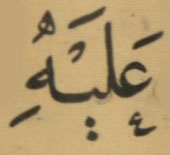 عَلَيْهِ